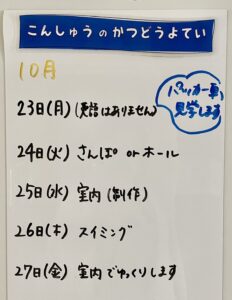 こんしゅうのかつどうよてい
10月
23日(月)(英語はありません)
パッカー車
見学します
24日(火) さんぽ or ホール
25日(水) 室内(制作)
26日(木) スイミング
27日(金) 室内でゆっくりします